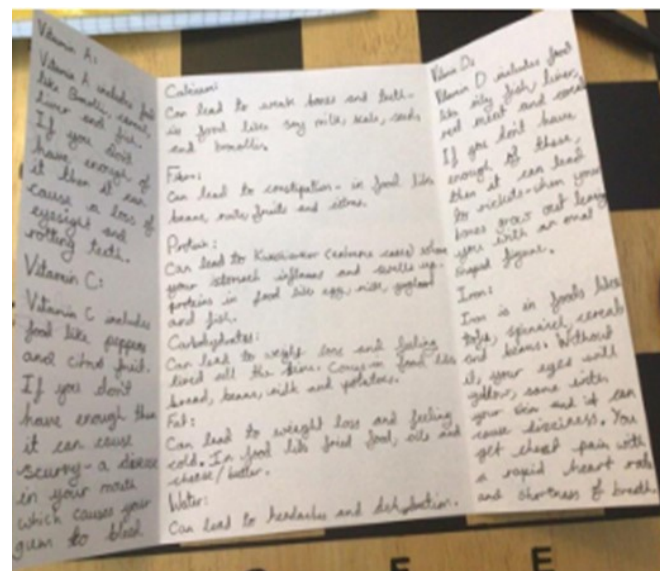 Vitamin A:
Vitamin A includes food
like Brocolli, cereal,
liver and fish.
If you don't
have enough of
it then it can
cause a loss of
eyesight and
rotting teeth.
Vitamin C:
Vitamin C includes
food like peppers
and citrus fruit.
If you don't
have enough then
it can cause
scurvy - a disease
in your mouth
which causes your
gum to bleed
Calcium:
Can lead to weak bones and teeth -
in food like soy milk, kale, seeds,
and brocollis.
Fibre:
Can lead to constipation - in food like
beans, nuts, fruits and
Protein:
Can lead to (extreme cases) where
your stomach inflames and swells up -
proteins in food like egg, milk,
and fish.
Carbohydrates:
Can lead to weight loss and feeling
tired all the time. Comes in food like
bread, beans, milk and potatoes.
Fat:
Can lead to weight loss and feeling
cold. In food like fried food, oils and
cheese/butter.
Water:
Can lead to headaches and dehydration.
Vitamin D:
Vitamin D includes food
like oily fish, liver,
red meat and cereal
If you don't have
enough of these,
then it can lead
to rickets - when your
bones grow out leaving
you with an
shaped figure.
Iron:
Iron is in foods like
tofu, cereals
and beans. Without
it, your eyes will
yellow, same with
your skin and it can
cause dizziness. You
get chest pain with
a rapid heart rate
and shortness of breath.
E